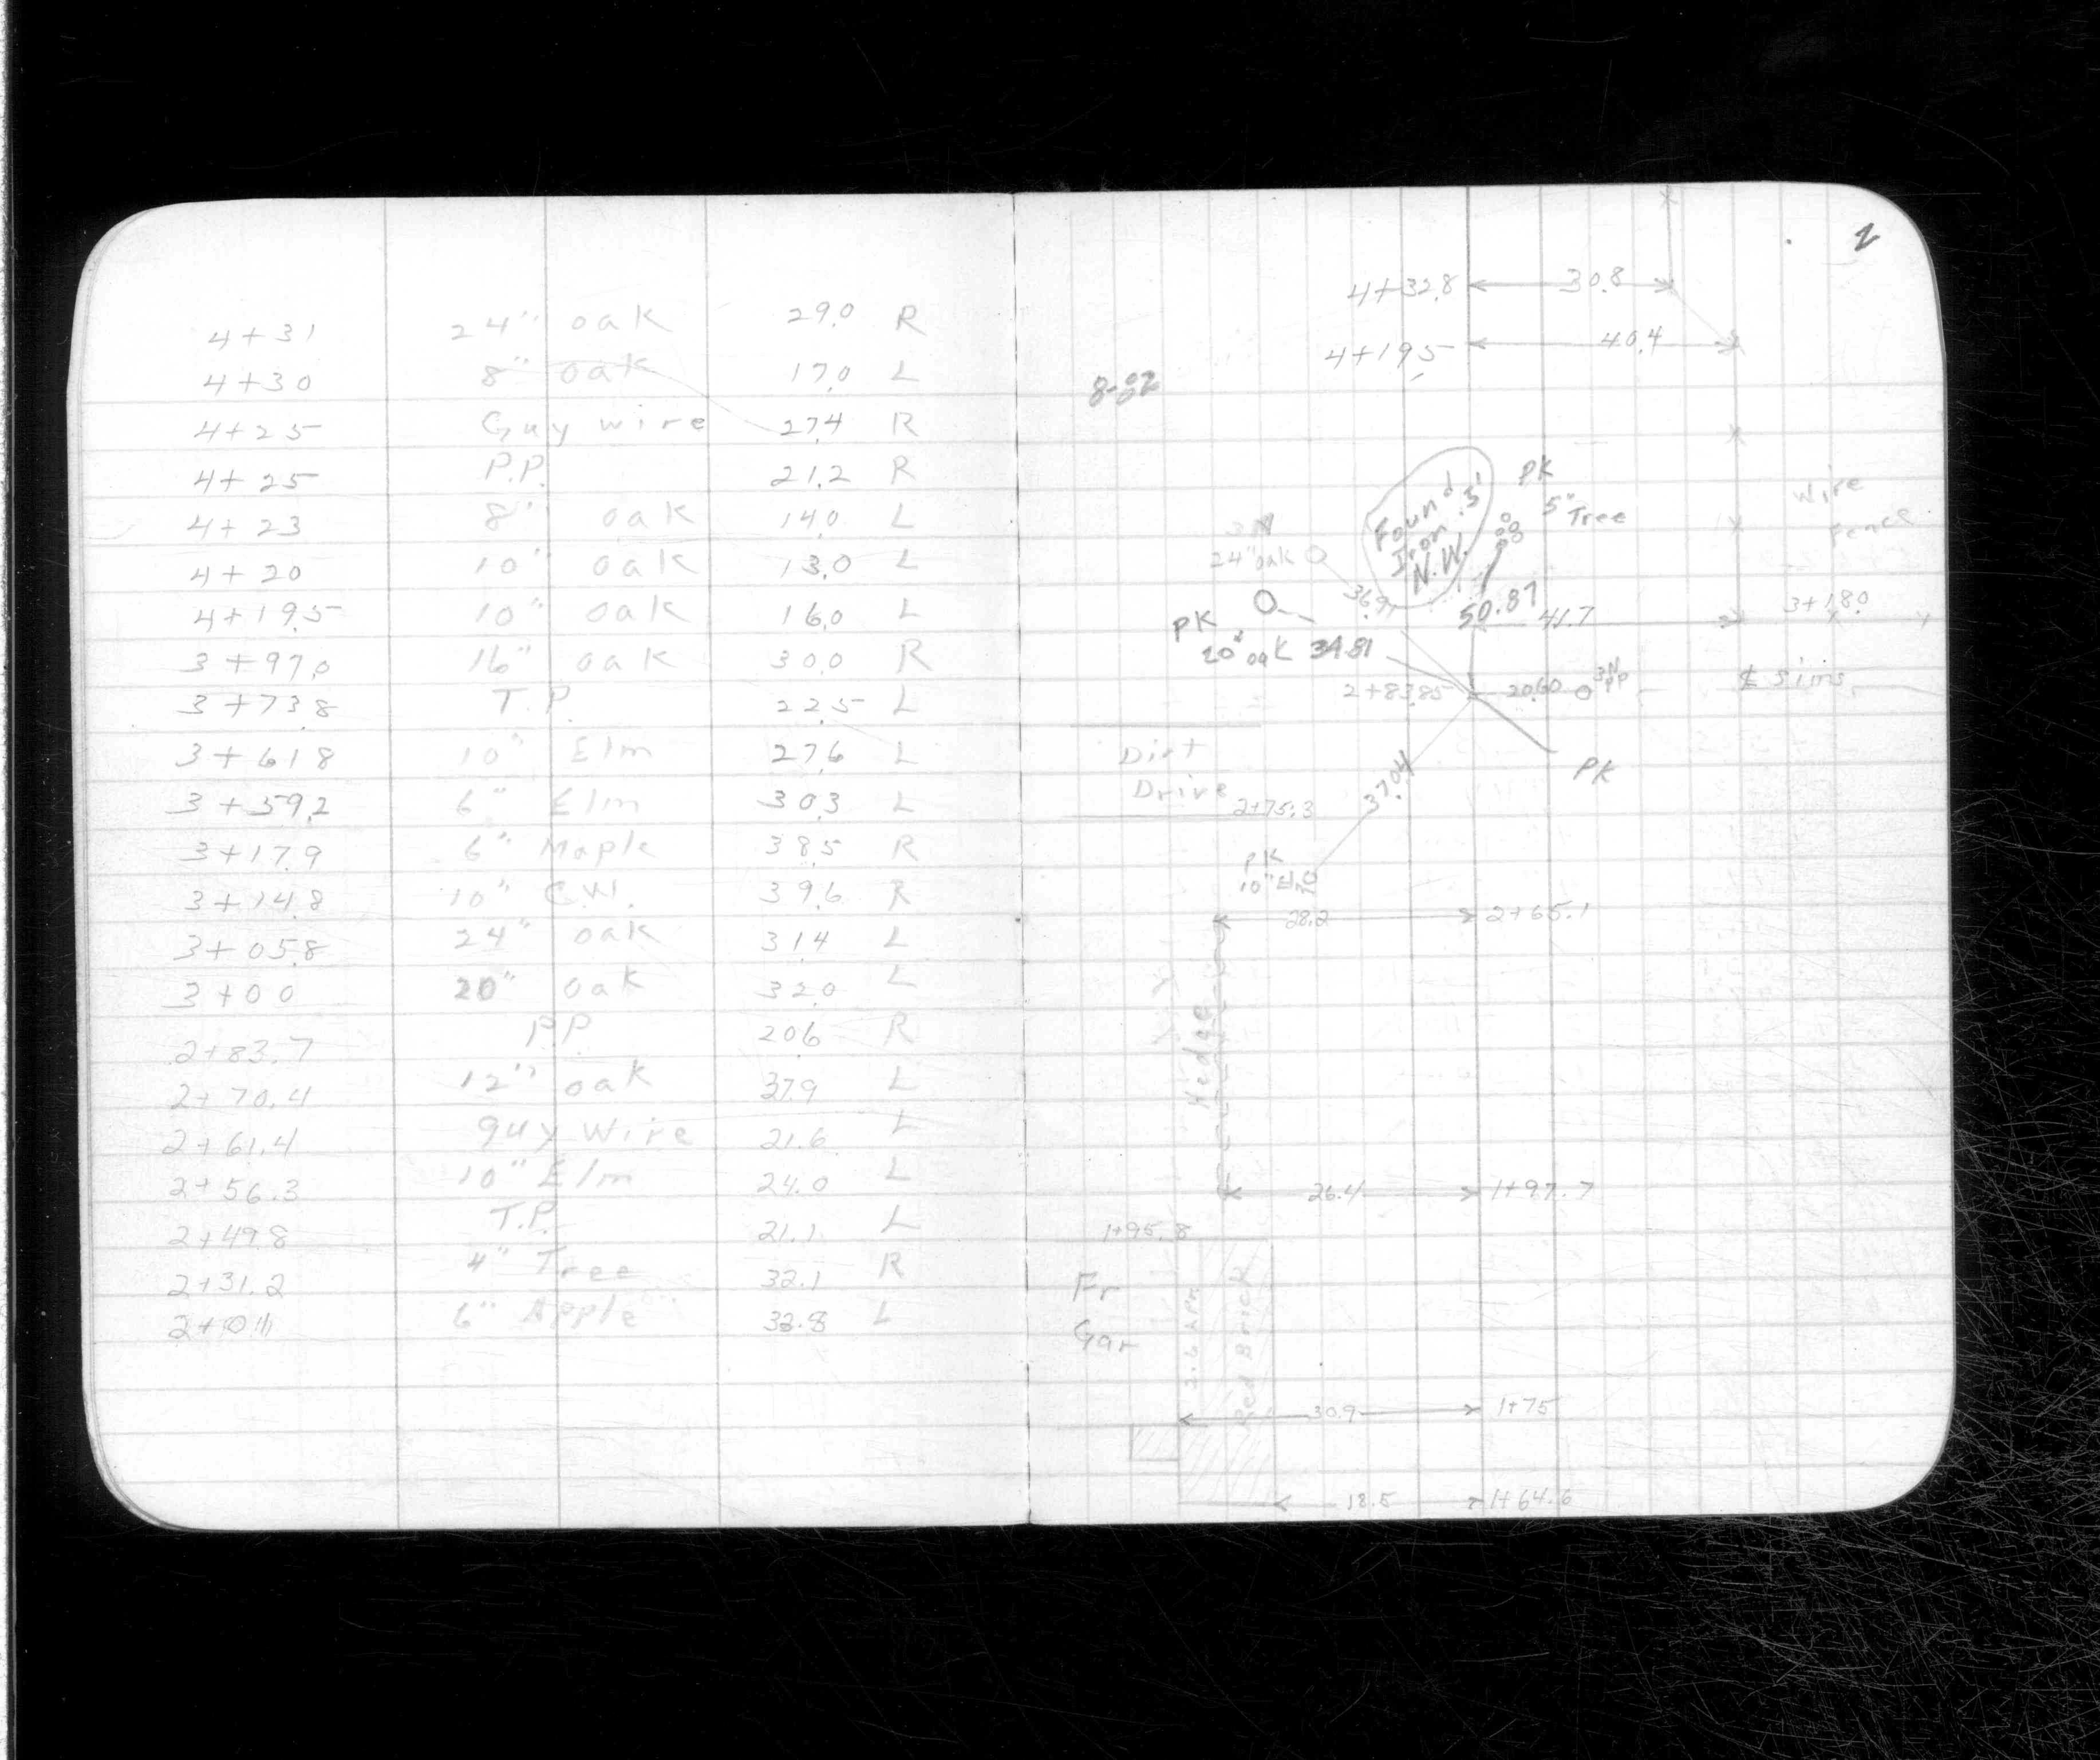 4+31 24" oak 29.0 R
4+30 8" oak 17.0 L
4+25 Guy wire 27.4 R
4+25 P.P. 21.2 R
4+23 8" oak 14.0 L
4+20 10" oak 13.0 L
4+19.5 10" oak 16.0 L
3+97.0 16" oak 30.0 R
3+73.8 T.P. 22.5 L
3+61.8 10" Elm 27.6 L
3+59.2 6" Elm 30.3 L
3+17.9 6" Maple 38.5 R
3+14.8 10" C.W. 39.6 R
3+05.8 24" oak 31.4 L
3+00 20" oak 32.0 L
2+83.7 P.P. 20.6 R
2+70.4 12" oak 37.9 L
2+61.4 guy Wire 21.6 L
2+56.3 10" Elm 24.0 L
2+49.8 T.P. 21.1 L
2+31.2 4" Tree 32.1 R
6" Apple L
2
4+32.8 30.8
4+19.5 40.4
PK
5" Tree
Found
Iron .3'
N.W.
Wire
Fence
3N
24" oak
36.91
50.87 41.7 3+18.0
PK
20" oak 34.81
2+83.85 20.60 3N PP
₵ Sims
Dirt
Drive 2+75.3
37.04
PK
PK
10" Elm
28.2 2+65.1
Hedge
26.4 1+97.7
1+95.8
Fr
Gar
Red Brick
30.9 1+75
18.5 1+64.6